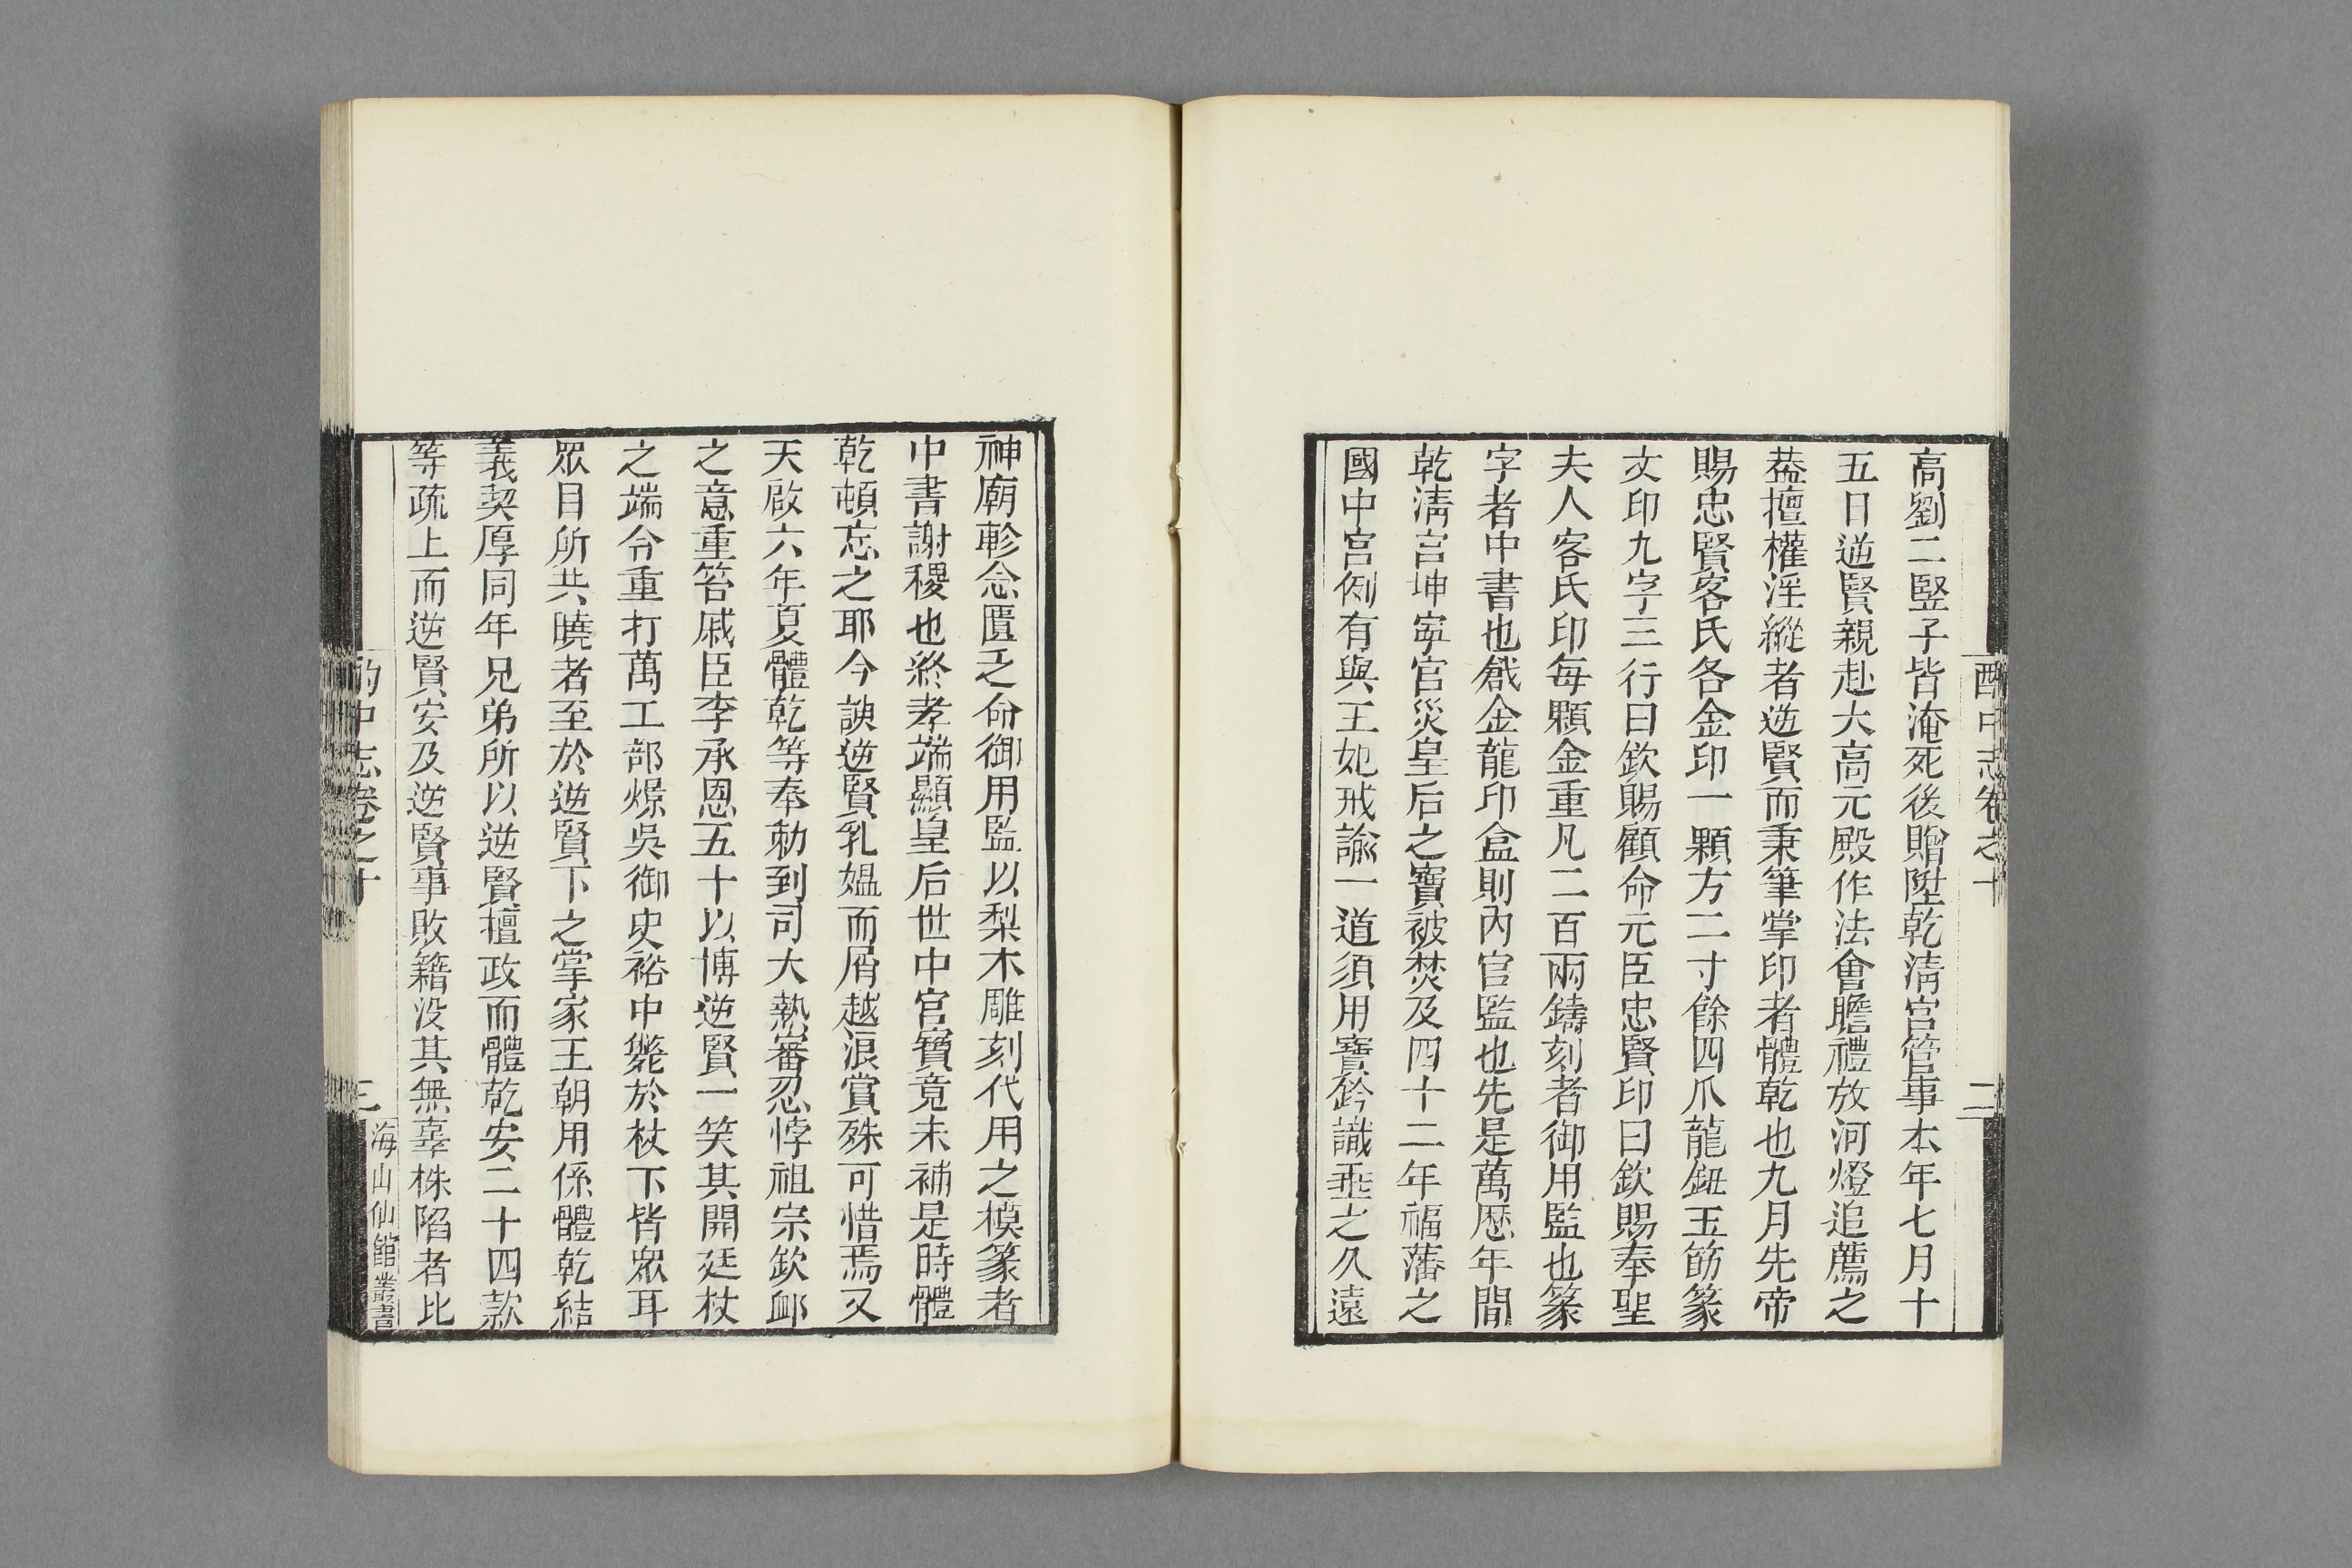 酌中志卷之十
二
高劉二豎子皆淹死後贈陞乾淸宮管事本年七月十
五日逆賢親赴大高元殿作法會瞻禮放河燈追薦之
葢擅權淫縱者逆賢而秉筆掌印者體乾也九月先帝
賜忠賢客氏各金印一顆方二寸餘四爪龍鈕玉筯篆
文印九字三行曰欽賜顧命元臣忠賢印曰欽賜奉聖
夫人客氏印每顆金重凡二百兩鑄刻者御用監也篆
字者中書也戧金龍印盒則內官監也先是萬歷年間
乾淸宮坤寧宮災皇后之寶被焚及四十二年福藩之
國中宮例有與王妃戒諭一道須用寶鈐識垂之久遠
神廟軫念匱乏命御用監以梨木雕刻代用之模篆者
中書謝稷也終孝端顯皇后世中宮寶竟未補是時體
乾頓忘之耶今諛逆賢乳媼而屑越浪賞殊可惜焉又
天啟六年夏體乾等奉勅到司大熱審忍悖祖宗欽卹
之意重笞戚臣李承恩五十以博逆賢一笑其開廷杖
之端令重打萬工部燝吳御史裕中斃於杖下皆眾耳
眾目所共曉者至於逆賢下之掌家王朝用係體乾結
義契厚同年兄弟所以逆賢擅政而體乾安二十四款
等疏上而逆賢安及逆賢事敗籍沒其無辜株陷者比
酌中志卷之十
三
海山仙館叢書